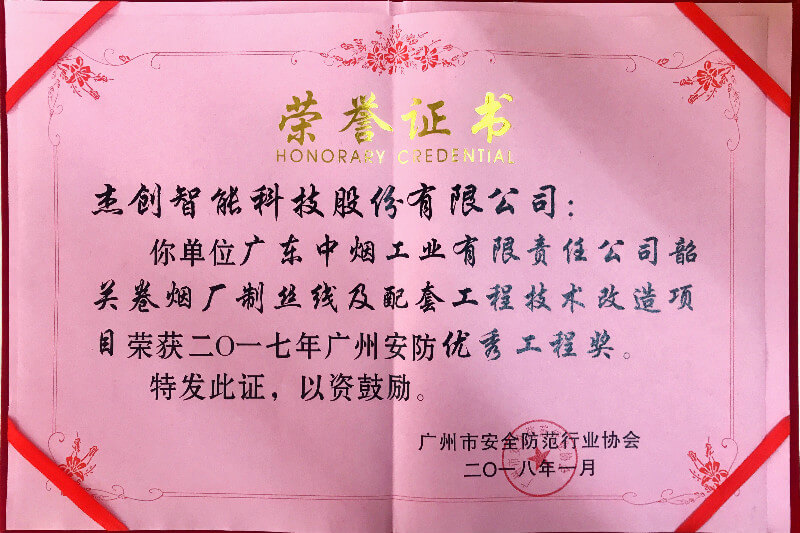 荣誉证书
HONORARY CREDENTIAL
杰创智能科技股份有限公司：
你单位广东中烟工业有限责任公司韶
关卷烟厂制丝线及配套工程技术改造项
目荣获二〇一七年广州安防优秀工程奖。
特发此证，以资鼓励。
广州市安全防范行业协会
二〇一八年一月